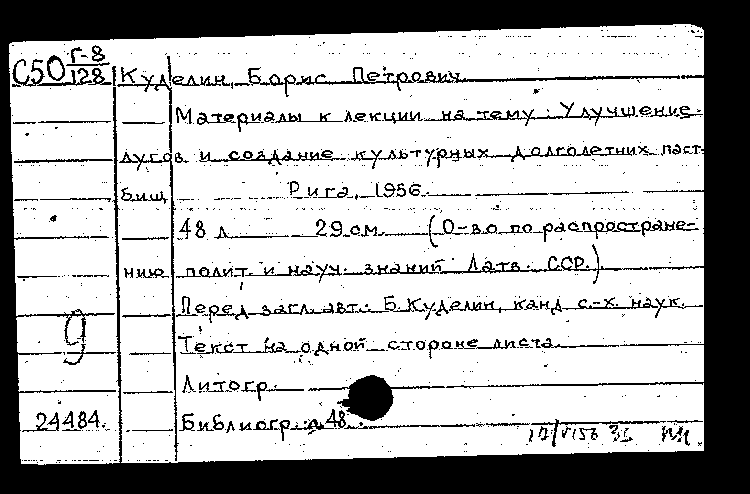 С50 Г-8/128 Куделин, Борис Петрович
Материалы к лекции на тему: Улучшение
лугов и создание культурных долголетних паст-
бищ Рига, 1956.
48 л 29 см. (О-во по распростране-
нию полит. и науч. знаний Латв. ССР.)
Перед загл. авт.: Б. Куделин, канд с.-х. наук.
9
Текст на одной стороне листа.
Литогр.
24484. Библиогр.: л. 48.